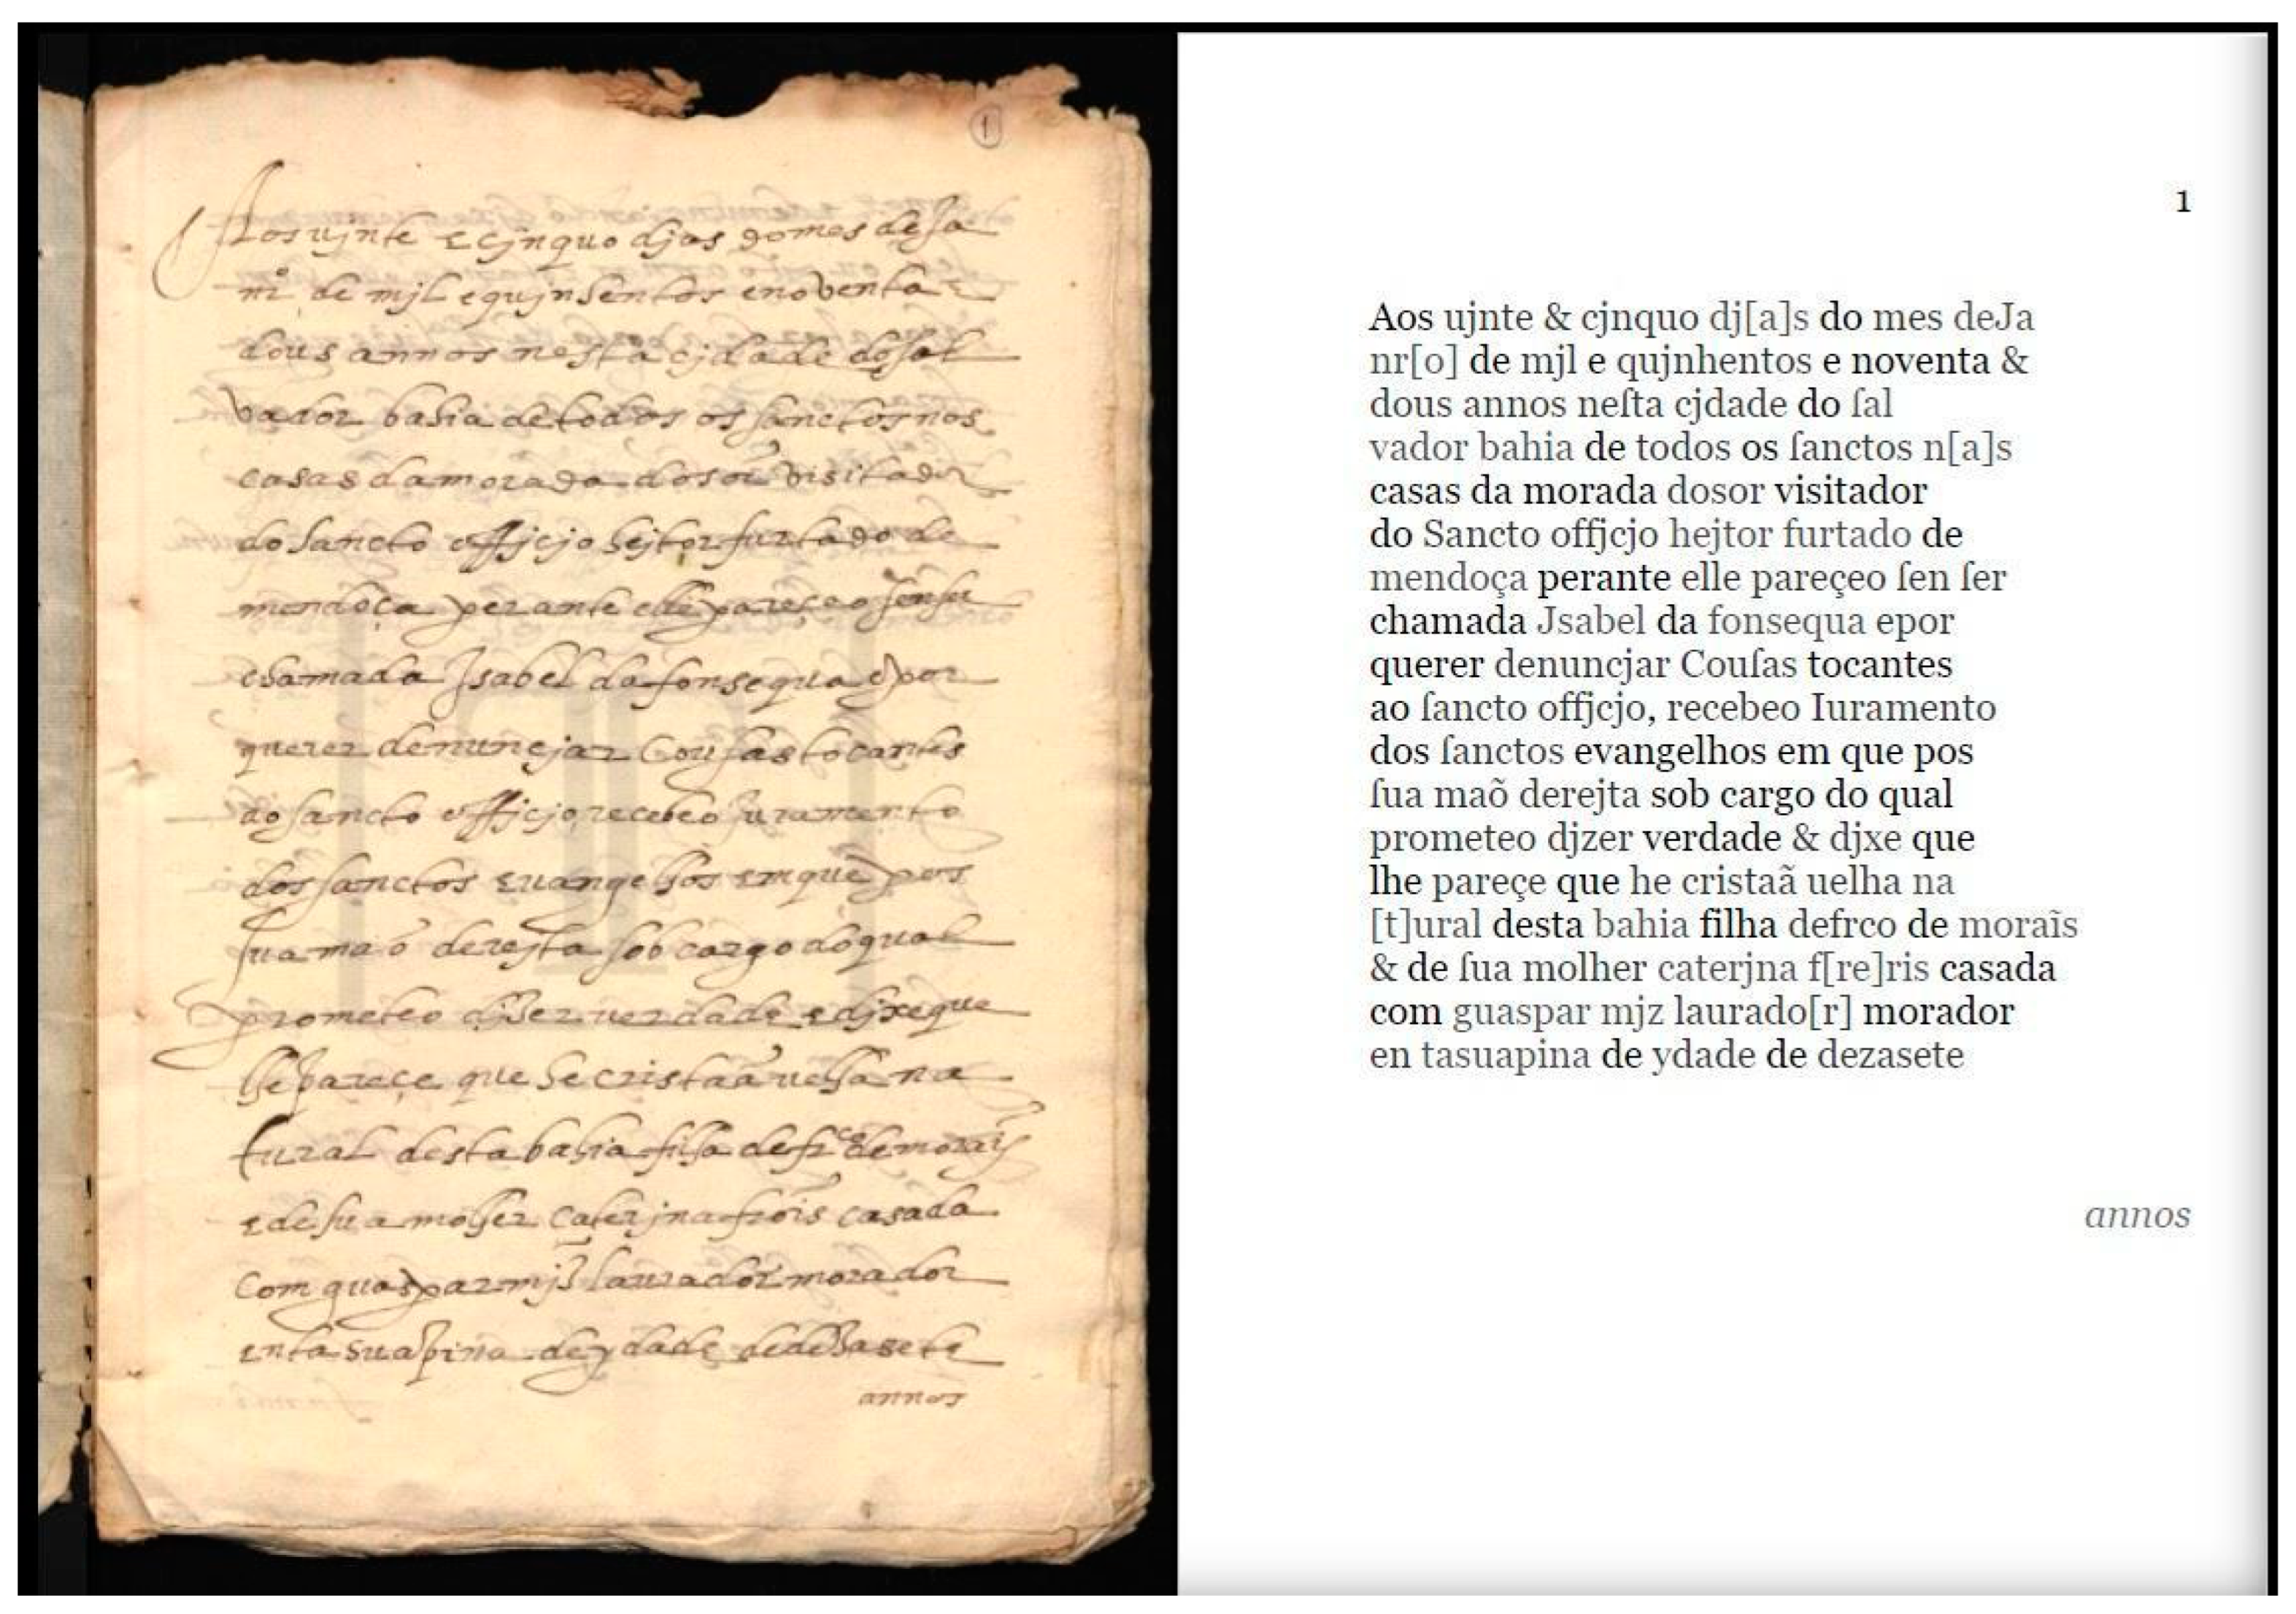 1
Aos ujnte e cjnquo djas do mes de Ja
nrº de mjl e qujnhentos e noventa e
dous annos nesta cjdade do sal
vador bahia de todos os sanctos nas
casas da morada do sor visitador
do sancto officjo hejtor furtado de
mendoça perante elle pareçeo sen ser
chamada Jsabel da fonsequa e por
querer denuncjar Cousas tocantes
ao sancto officjo, recebeo Juramento
dos sanctos euangelhos em que pos
sua maõ derejta sob cargo do qual
prometeo djzer verdade e djxe que
lhe pareçe que he cristaã uelha na
tural desta bahia filha de frco de morais
e de sua molher caterjna frois casada
Com guaspar mjz laurador morador
en tasuapina de ydade de dezasete
annos
1
Aos ujnte & cjnquo dj[a]s do mes deJa
nr[o] de mjl e qujnhentos e noventa &
dous annos neſta cjdade do ſal
vador bahia de todos os ſanctos n[a]s
casas da morada dosor visitador
do Sancto offjcjo hejtor furtado de
mendoça perante elle pareçeo ſen ſer
chamada Jsabel da fonsequa epor
querer denuncjar Couſas tocantes
ao ſancto offjcjo, recebeo Iuramento
dos ſanctos evangelhos em que pos
ſua maõ derejta sob cargo do qual
prometeo djzer verdade & djxe que
lhe pareçe que he cristaã uelha na
[t]ural desta bahia filha defrco de moraĩs
& de ſua molher caterjna f[re]ris casada
com guaspar mjz laurado[r] morador
en tasuapina de ydade de dezasete
annos